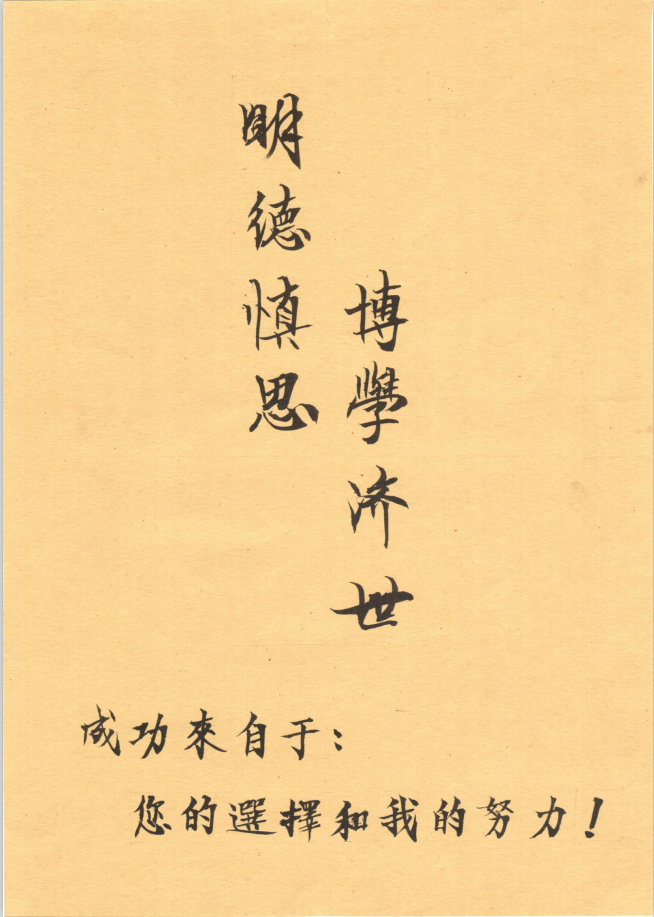 明德慎思
博學济世
成功來自于：
您的選擇和我的努力！